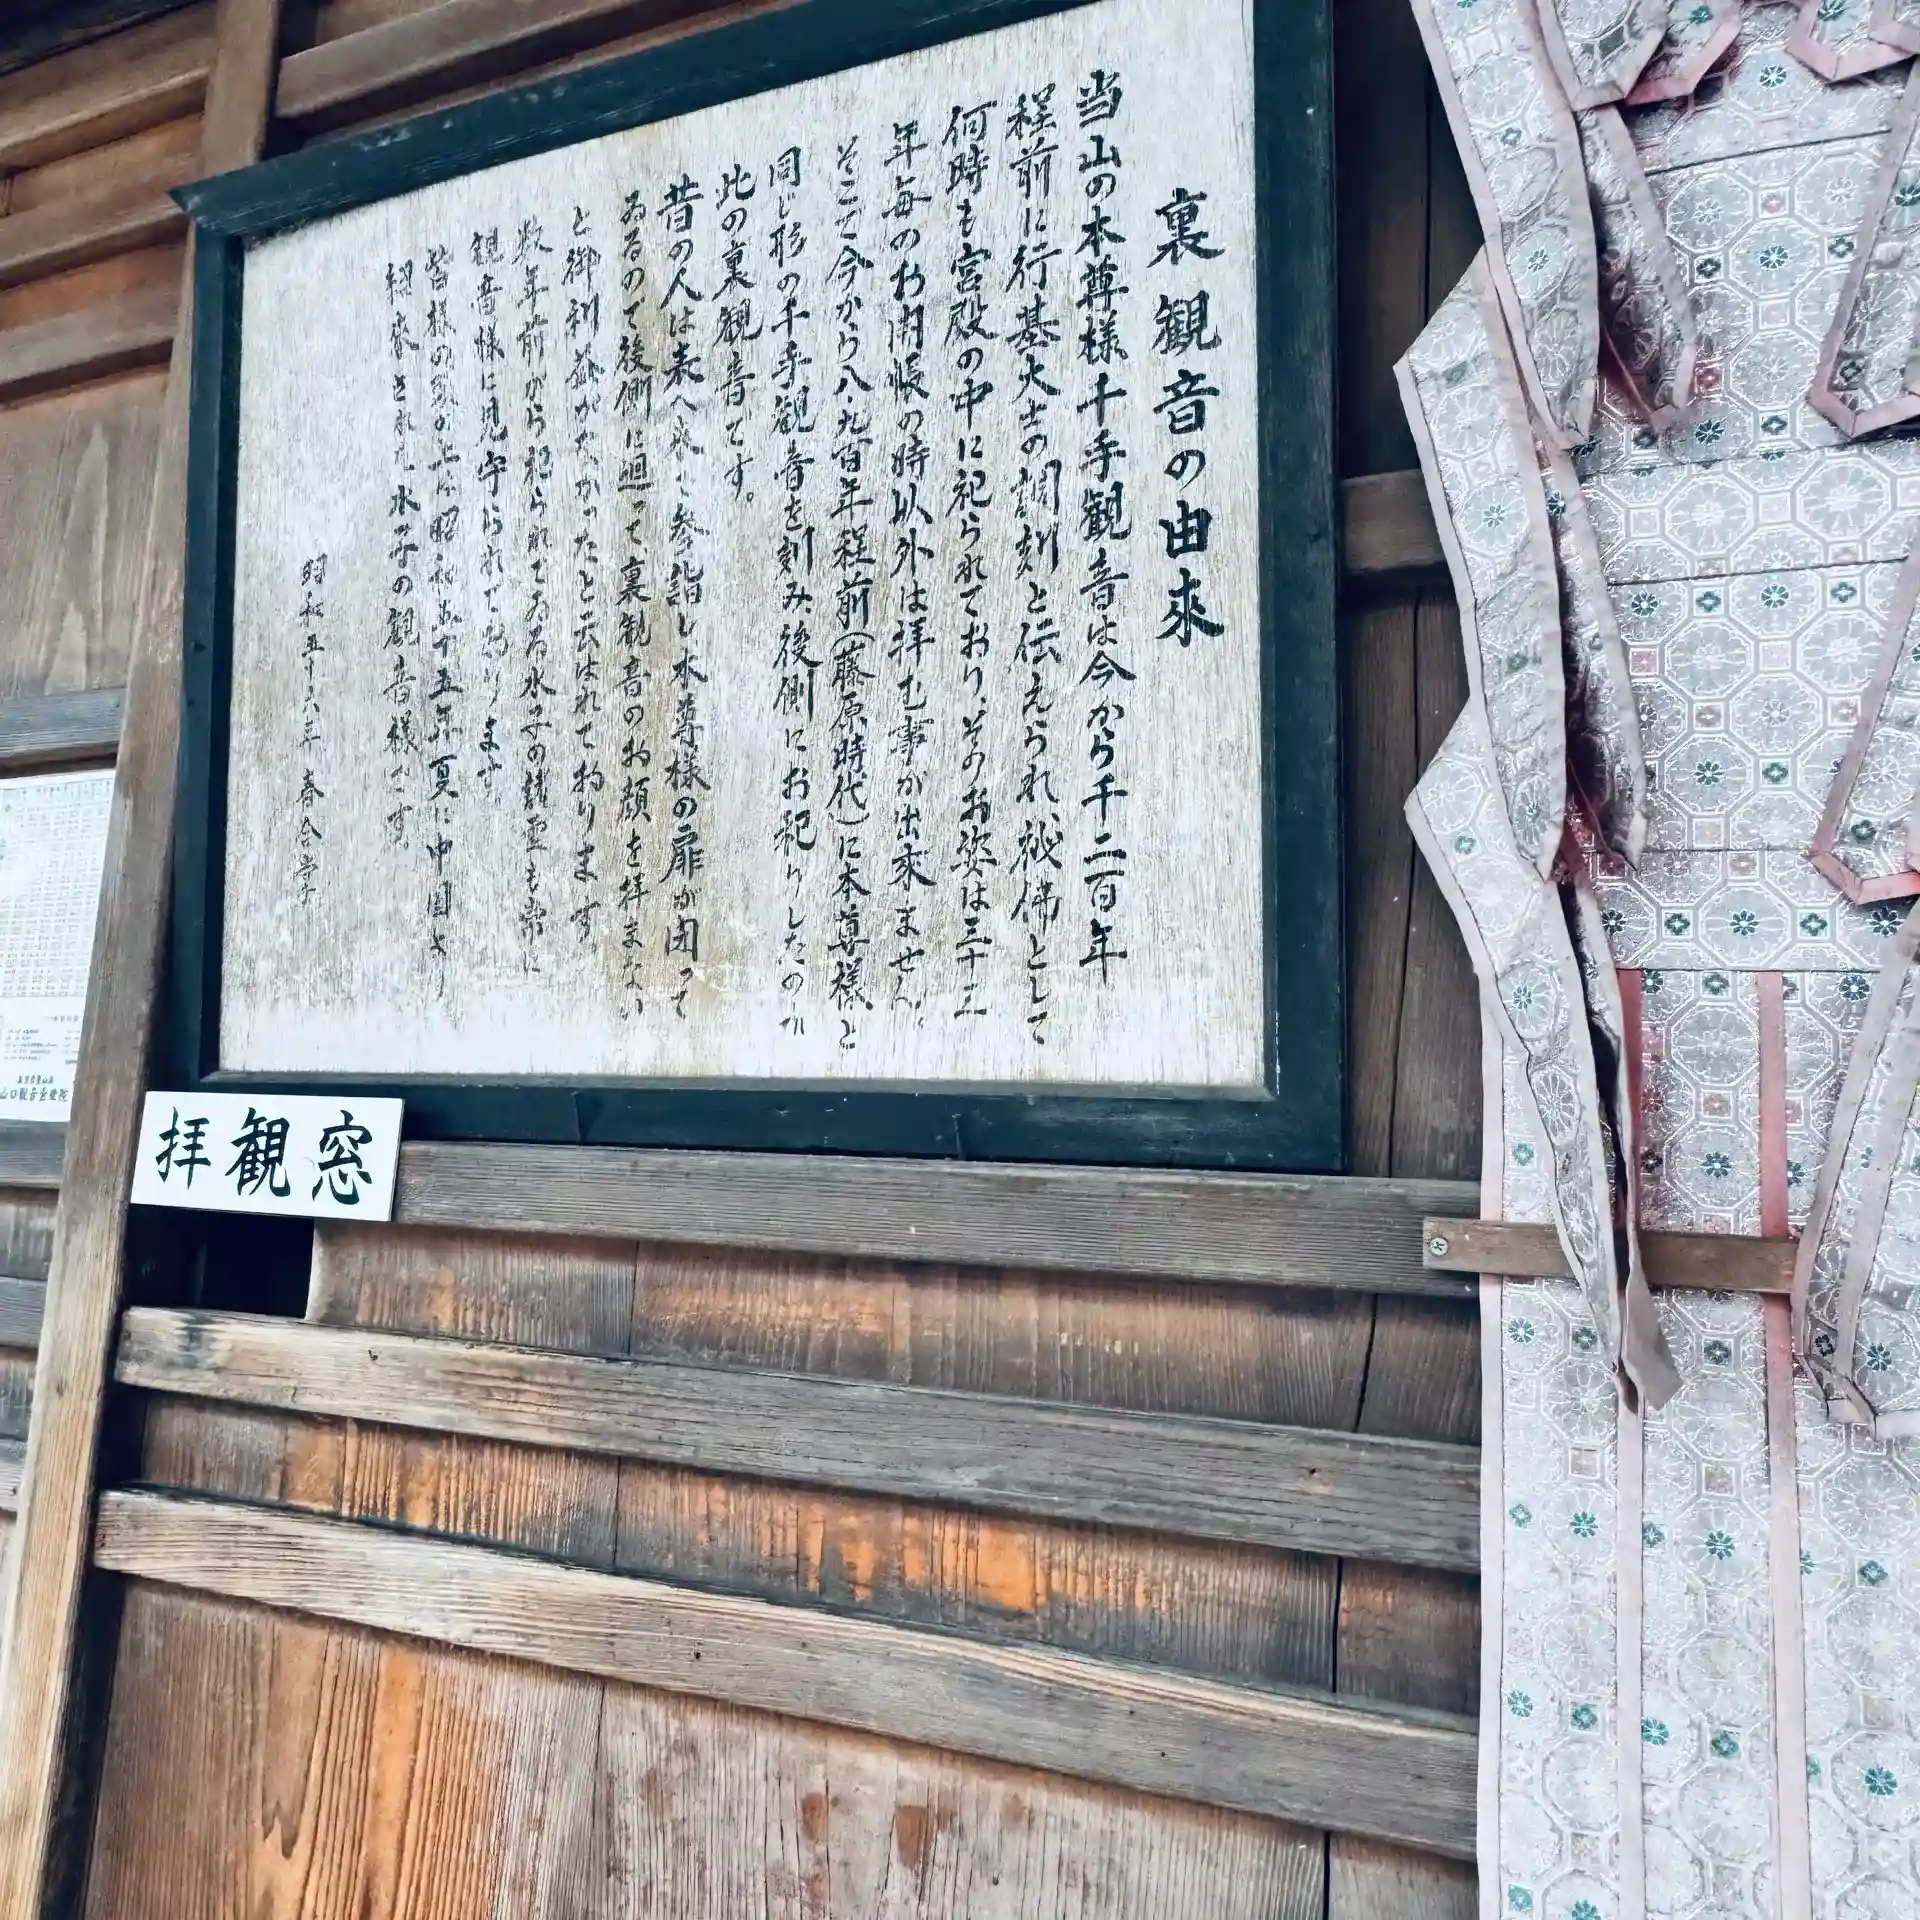 裏観音の由来
当山の本尊様千手観音は今から千二百年
程前に行基大士の調刻と伝えられ、秘佛として
何時も宮殿の中に祀られており、そのお姿は三十三
年毎のお開帳の時以外は拝む事が出来ません。
そこで今から八・九百年程前(藤原時代)に本尊様と
同じ形の千手観音を刻み、後側にお祀りしたのが
此の裏観音です。
昔の人は表へ来て参詣し本尊様の扉が閉って
ゐるので後側に廻って、裏観音のお顔を拝まない
と御利益がなかったと云はれて居ります。
数年前から祀られてゐる水子の諸霊も常に
観音様に見守られて居ります。
皆様の頭の上は昭和五十五年夏に中国より
招来された水子の観音様です。
昭和五十六年 春 合掌
拝観窓
山口観音金乗院